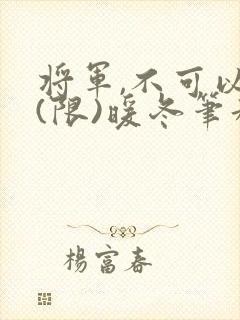 將軍,不可以
(限)暖冬筆
楊富春